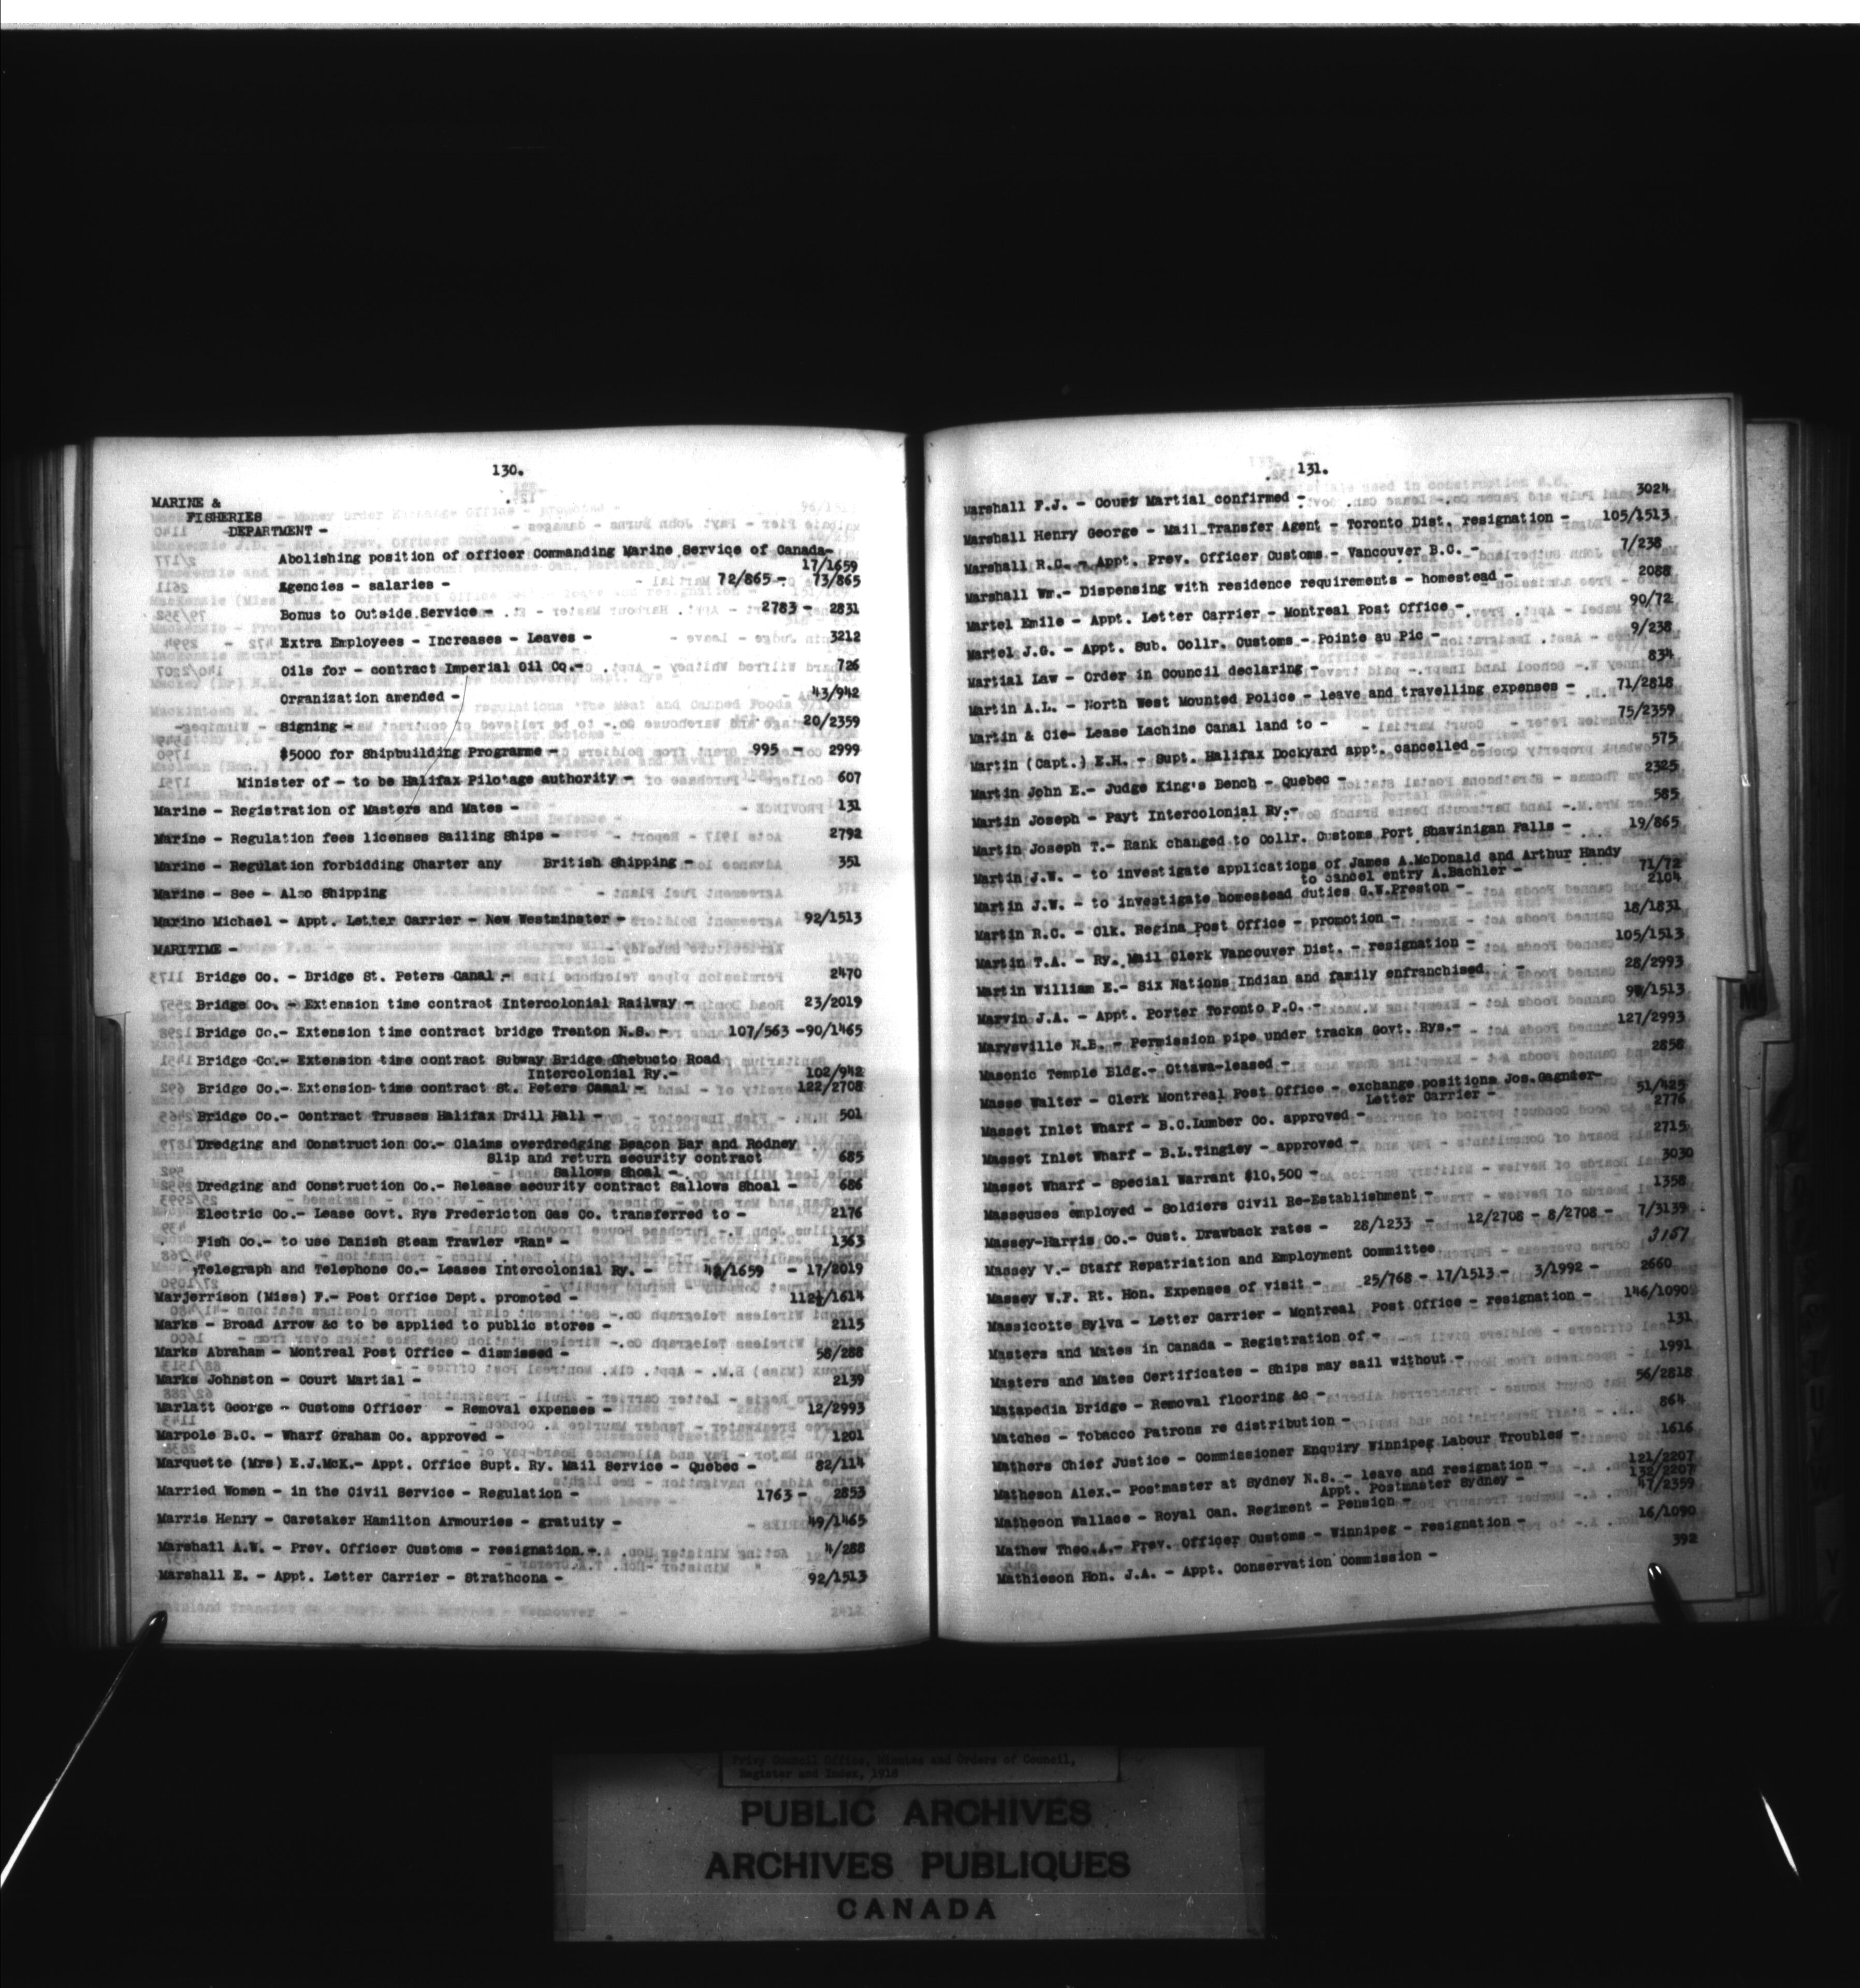 130.
MARINE &
FISHERIES
DEPARTMENT -
Abolishing position of officer Commanding Marine Service of Canada-
17/1659
Agencies - salaries - 72/865 - 73/865
Bonus to Outside Service - 2783 - 2831
Extra Employees - Increases - Leaves - 3212
Oils for - contract Imperial Oil Co.- 726
Organization amended - 43/942
Signing - 20/2359
$5000 for Shipbuilding Programme - 995 - 2999
Minister of - to be Halifax Pilotage authority - 607
Marine - Registration of Masters and Mates - 131
Marine - Regulation fees licenses Sailing Ships - 2792
Marine - Regulation forbidding Charter any British Shipping - 351
Marine - See - Also Shipping
Marino Michael - Appt. Letter Carrier - New Westminster - 92/1513
MARITIME -
Bridge Co. - Bridge St. Peters Canal - 2470
Bridge Co. - Extension time contract Intercolonial Railway - 23/2019
Bridge Co.- Extension time contract bridge Trenton N.S. - 107/563 -90/1465
Bridge Co.- Extension time contract Subway Bridge Chebucto Road
Intercolonial Ry.- 102/942
Bridge Co.- Extension time contract St. Peters Canal - 122/2708
Bridge Co.- Contract Trusses Halifax Drill Hall - 501
Dredging and Construction Co.- Claims overdredging Beacon Bar and Rodney
Slip and return security contract 685
Sallows Shoal -
Dredging and Construction Co.- Release security contract Sallows Shoal - 686
Electric Co.- Lease Govt. Rys Fredericton Gas Co. transferred to - 2176
Fish Co.- to use Danish Steam Trawler "Ran" - 1363
Telegraph and Telephone Co.- Leases Intercolonial Ry. - 42/1659 - 17/2019
Marjerrison (Miss) F.- Post Office Dept. promoted - 112½/1614
Marks - Broad Arrow &c to be applied to public stores - 2115
Marks Abraham - Montreal Post Office - dismissed - 58/288
Marks Johnston - Court Martial - 2139
Marlatt George - Customs Officer - Removal expenses - 12/2993
Marpole B.C. - Wharf Graham Co. approved - 1201
Marquette (Mrs) E.J.McK.- Appt. Office Supt. Ry. Mail Service - Quebec - 82/114
Married Women - in the Civil Service - Regulation - 1763 - 2853
Marris Henry - Caretaker Hamilton Armouries - gratuity - 49/1465
Marshall A.W. - Prev. Officer Customs - resignation - 4/288
Marshall E. - Appt. Letter Carrier - Strathcona - 92/1513
131.
Marshall F.J. - Court Martial confirmed - 3024
Marshall Henry George - Mail Transfer Agent - Toronto Dist. resignation - 105/1513
Marshall R.C. - Appt. Prev. Officer Customs - Vancouver B.C. - 7/238
Marshall Wm.- Dispensing with residence requirements - homestead - 2088
Martel Emile - Appt. Letter Carrier - Montreal Post Office - 90/72
Martel J.G. - Appt. Sub. Collr. Customs - Pointe au Pic - 9/238
Martial Law - Order in Council declaring - 834
Martin A.L. - North West Mounted Police - leave and travelling expenses - 71/2818
Martin & Cie- Lease Lachine Canal land to - 75/2359
Martin (Capt.) E.H. - Supt. Halifax Dockyard appt. cancelled - 575
Martin John E.- Judge King's Bench - Quebec - 2325
Martin Joseph - Payt Intercolonial Ry.- 585
Martin Joseph T.- Rank changed to Collr. Customs Port Shawinigan Falls - 19/865
Martin J.W. - to investigate applications of James A.McDonald and Arthur Handy
to cancel entry A.Bachler - 71/72
Martin J.W. - to investigate homestead duties G.W.Preston - 2104
Martin R.C. - Clk. Regina Post Office - promotion - 18/1831
Martin T.A. - Ry. Mail Clerk Vancouver Dist. - resignation - 105/1513
Martin William E.- Six Nations Indian and family enfranchised - 28/2993
Marvin J.A. - Appt. Porter Toronto P.O. - 98/1513
Marysville N.B. - Permission pipe under tracks Govt. Rys.- 127/2993
Masonic Temple Bldg.- Ottawa-leased - 2858
Masse Walter - Clerk Montreal Post Office - exchange positions Jos.Gagnier-
Letter Carrier - 51/425
Masset Inlet Wharf - B.C.Lumber Co. approved - 2776
Masset Inlet Wharf - B.L.Tingley - approved - 2715
Masset Wharf - Special Warrant $10,500 - 3030
Masseuses employed - Soldiers Civil Re-Establishment - 1358
Massey-Harris Co.- Cust. Drawback rates - 28/1233 - 12/2708 - 8/2708 - 7/3139
Massey V.- Staff Repatriation and Employment Committee 3167
Massey W.F. Rt. Hon. Expenses of visit - 25/768 - 17/1513 - 3/1992 - 2660
Massicotte Sylva - Letter Carrier - Montreal Post Office - resignation - 146/1090
Masters and Mates in Canada - Registration of - 131
Masters and Mates Certificates - Ships may sail without - 1991
Matapedia Bridge - Removal flooring &c - 56/2818
Matches - Tobacco Patrons re distribution - 864
Mathers Chief Justice - Commissioner Enquiry Winnipeg Labour Troubles - 1616
Matheson Alex.- Postmaster at Sydney N.S. - leave and resignation - 121/2207
Appt. Postmaster Sydney - 132/2207
Matheson Wallace - Royal Can. Regiment - Pension - 47/2359
Mathew Theo.A.- Prev. Officer Customs - Winnipeg - resignation - 16/1090
Mathieson Hon. J.A. - Appt. Conservation Commission - 392
Privy Council Office, Minutes and Orders of Council,
Register and Index, 1918
PUBLIC ARCHIVES
ARCHIVES PUBLIQUES
CANADA